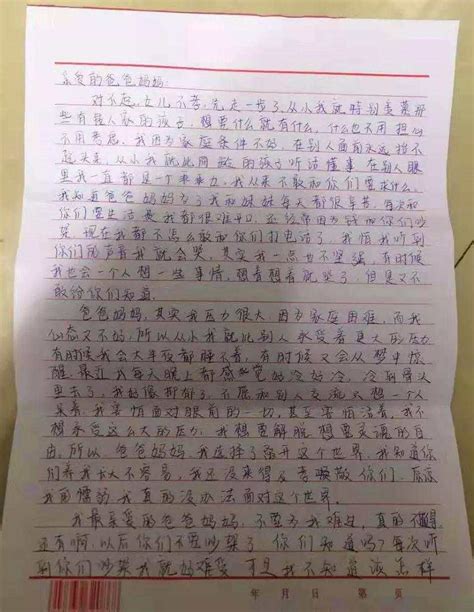 亲爱的爸爸妈妈:
对不起,女儿不孝,先走一步了,从小我就特别羡慕那
些有钱人家的孩子,想要什么就有什么,什么也不用担心
不用考虑,我因为家庭条件不好,在别人面前永远抬不
起头来,从小我就比同龄的孩子听话懂事在别人眼
里我一直都是个乖乖女,我从来不敢和你们要求什么,
我知道爸爸妈妈为了我和妹妹每天都很辛苦,每次和
你们要生活费我都很难开口,还经常因为钱和你们吵
架,现在我都不怎么敢和你们打电话了,我怕我听到
你们的声音我就会哭,其实我一点也不坚强,有时候
我也会一个人想一些事情,想着想着就哭了,但是又不
敢给你们知道。
爸爸妈妈,其实我压力很大,因为家庭困难,而我
心态又不好,所以从小我就比别人承受着更大的压力
有时候我会大半夜都睡不着,有时候又会从梦中惊
醒,最近我每天晚上都感觉好冷好冷,冷到骨头
里去了,我好像抑郁了,不愿和别人交流,只想一个人
呆着,我害怕面对眼前的一切,甚至害怕活着,我不
想承受这么大的压力,我想要解脱想要灵魂的自
由,所以,爸爸妈妈,我选择了离开这个世界,我知道你
们养我长大不容易,我还没来得及孝敬你们,原谅
我的懦弱,我真的没办法面对这个世界。
我最亲爱的爸爸妈妈,不要为我难过,真的不值得
还有啊,以后你们不要吵架了,你们知道吗?每次听
到你们吵架我就好难受,可是我不知道该怎样
年 月 日 第 页